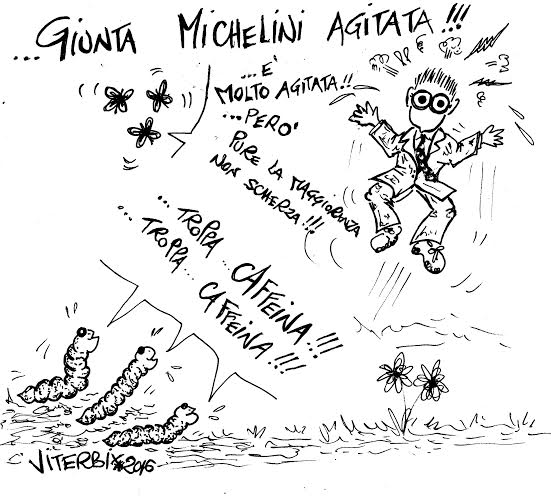 ...GIUNTA MICHELINI AGITATA!!!
...E'
MOLTO AGITATA!!
...PERO'
PURE LA MAGGIORANZA
NON SCHERZA!!!
...TROPPA...CAFFEINA!!!
...TROPPA...CAFFEINA!!!
VITERBIX 2016